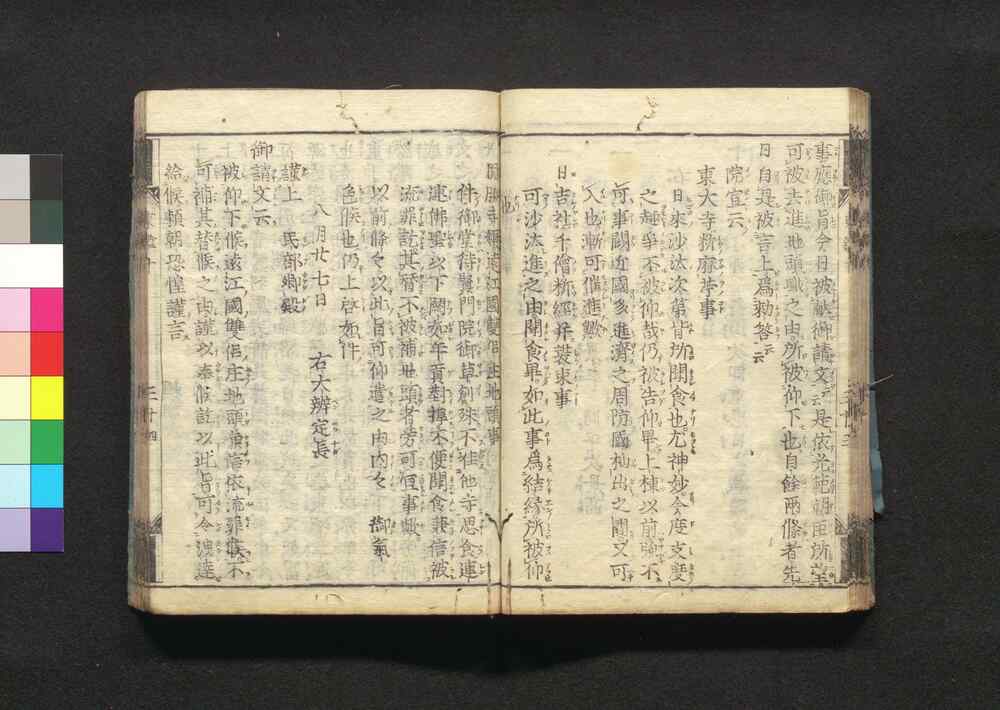 事應御旨今日被献御請文云云是依光範朝臣所望
可被去進地頭職之由所被仰下也自餘兩條者先
日自是被言上爲勅答云云
院宣云
東大寺抐麻苧事
日來沙汰次第皆所聞食也尤神妙今度支雙
之超學不被仰哉仍被告仰畢上棟以前爭不
可事闕近國多進濟之周防國杣出之間又可
人也漸可催進歟
日吉社千僧御經并裝束事
可沙汰進之由聞食畢如此事爲結縁所被仰
也
圓勝寺領遠江國雙侶庄地頭事
件御堂待賢門院御草創殊不准他寺思食連
連佛聖以下闕如年貢對捍不便聞食兼信被
流罪訖其替不被補地頭者旁可但事歟
以前條々以此旨可仰遣之由内々 御氣
色候也仍上啓如件
八月廿七日 右大辨定長
謹上 民部卿殿
御請文云
被仰下候遠江國雙侶庄地頭兼信依流罪候不
可補其替候之由謹以奉候訖以此旨可令洩達
給候頼朝恐惶謹言
三十四